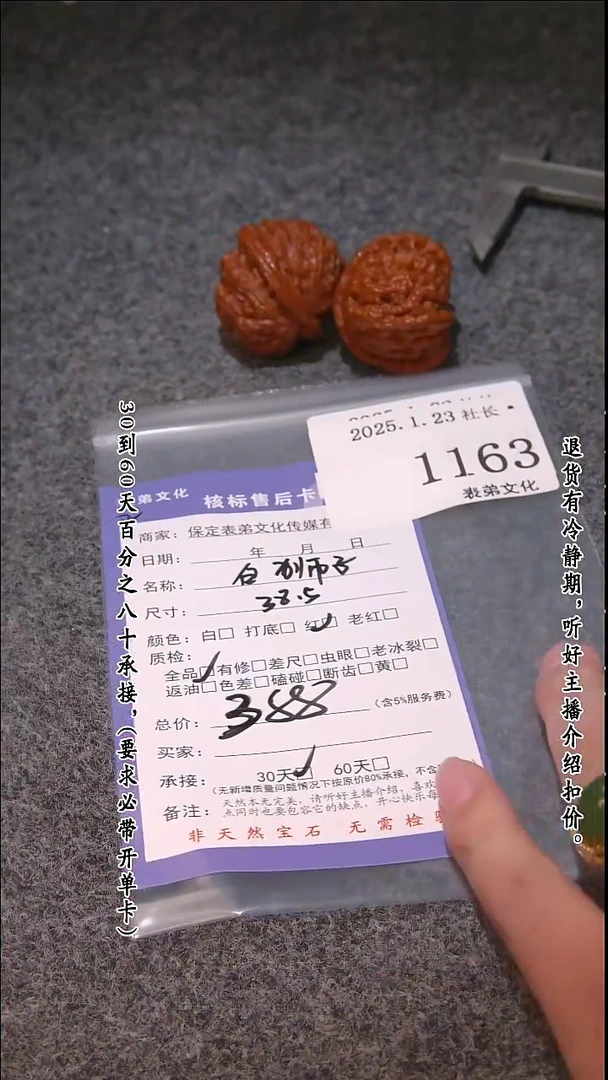 2025.1.23 社长
1163
表弟文化
弟文化 核标售后卡
商家: 保定表弟文化传媒有
日期: 年 月 日
名称: 白狮子
尺寸: 38.5
颜色: 白□ 打底□ 红☑ 老红□
质检:
全品☑有修□差尺□虫眼□老冰裂□
返油□色差□磕碰□断齿□黄□
总价: 388 (含5%服务费)
买家:
承接: 30天☑ 60天□
(无新增质量问题情况下按原价80%承接, 不含
备注: 天然本无完美, 请听好主播介绍, 喜欢
点同时也要包容它的缺点, 开心快乐每
非天然宝石 无需检验
30到60天百分之八十承接,(要求必带开单卡)
退货有冷静期,听好主播介绍扣价。